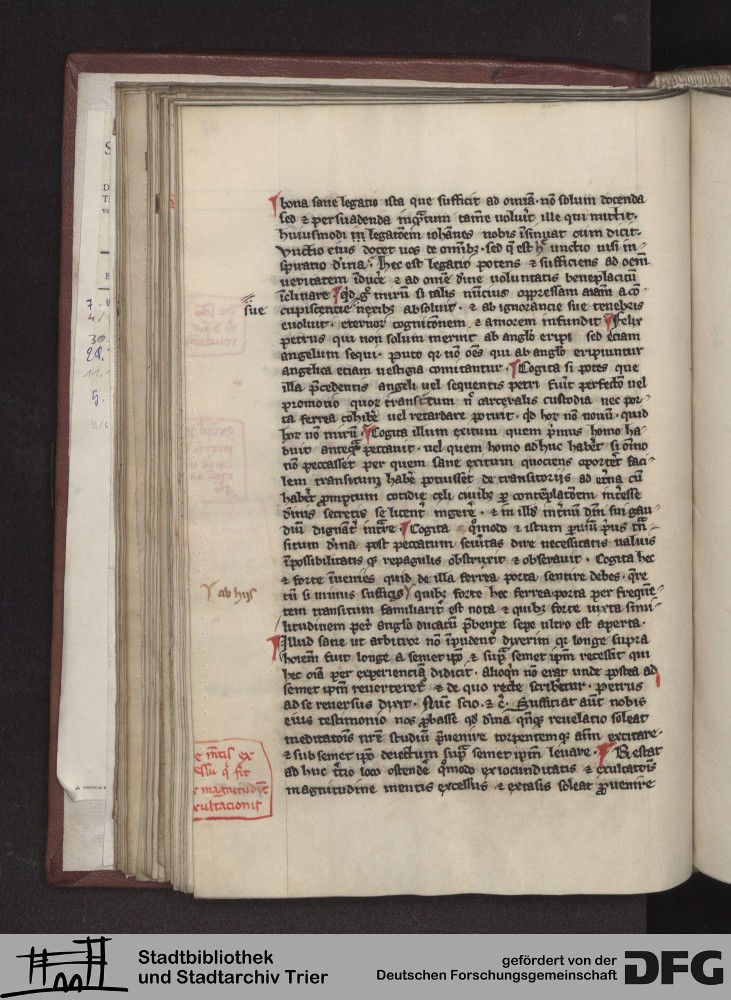 bona sane legatio ista que sufficit ad omnia. nō solum docenda
sed ⁊ persuadenda inquātum tamē voluit ille qui mittit.
huiusmodi legatōem iohānes nobis īsinuat cum dicit.
Vnctio eius docet uos de omībꝫ. sed q̄ est hͨ unctio nisi in-
spiratio dīna. hec est legatio potens ⁊ sufficiens ad oēm
ueritatem īducē ⁊ ad omē dīne uoluntatis beneplacitū
īclinare. qͥd gͦ mirū si talis nūcius oppressam aīam a cō-
sue
cupiscentie nexibꝫ absoluit. ⁊ ab ignorancie sue tenebris
euoluit. eternoꝝ cognitōnem ⁊ amorem infundit. Felix
petrus qui non solum meruit ab anglo eripi sed etiam
angelum sequi. puto qꝛ nō oēs qui ab anglo eripiuntur
angelica etiam uestigia comitantur. Cogita si potes que
illa p̄cedentis angeli uel sequentis petri fuit perfectō uel
promotio quoꝝ transitum nͨ carceralis custodia nec por-
ta ferrea cohibē uel retardare potuit. sꝫ hoc nō nouū. quid
hoc nō mirū. Cogita illum exitum quem p̄mus homo ha-
buit anteqͣ̄ peccauit. uel quem homo adhuc habet si oīno
nō peccasset per quem sane exitum quociens oporteret faci-
lem transitum habē potuisset de transitoriis ad etna cū
habet promptum cotidie celi ciuibꝫ per contēplatōem interesse
dīnis secretis se licent ingere. ⁊ in illd internū dnī sui gau-
diū dignant intre. Cogita quōmodo ⁊ istum peruiū prius trā-
situm dīna post peccatum seuitas dire necessitatis ualuis
īpossibilitatis qꝫ repagulis obstruxit ⁊ obserauit. Cogita hec
⁊ forte īuenies quid de illa ferrea porta sentire debes. qͥre
ab hijs
tū si minus sufficis quibꝫ forte hec ferrea porta per frequē-
tem transitum familiarit est nota ⁊ quibꝫ forte iuxta simi-
litudinem petri anglo ducatū p̄bente sepe ultro est aperta.
Illud sane ut arbitror nō īpudent dixerim qꝛ longe supra
hoīem fuit longe a semetip̄o ⁊ supͣ semet ip̄m recessit qui
hec oīa per experienciā didicit. Alioqͥn nō erat unde postea ad
semet ip̄m reuerteret ⁊ de quo recte scriberetur. Petrus
ad se reuersus dixit. Nūc scio. ⁊ c̄. Sufficiat aūt nobis
eius testimonio nos probasse qd dīna qn̄qꝫ reuelatio soleat
meditatōis nr̄e studiū p̄uenire torpentemqꝫ aīm excitare.
e mētis ex
⁊ sub semet ip̄o deiectum supͣ semet ip̄m leuare. Restat
essu q̄ fit
ad huc tͨio loco ostendē quōmodo ex iocunditatis ⁊ exultatōis
magnitudīe
magnitudine mentis excessus ⁊ extasis soleat prouenire
xultacionis
Stadtbibliothek
und Stadtarchiv Trier
gefördert von der
Deutschen Forschungsgemeinschaft
DFG